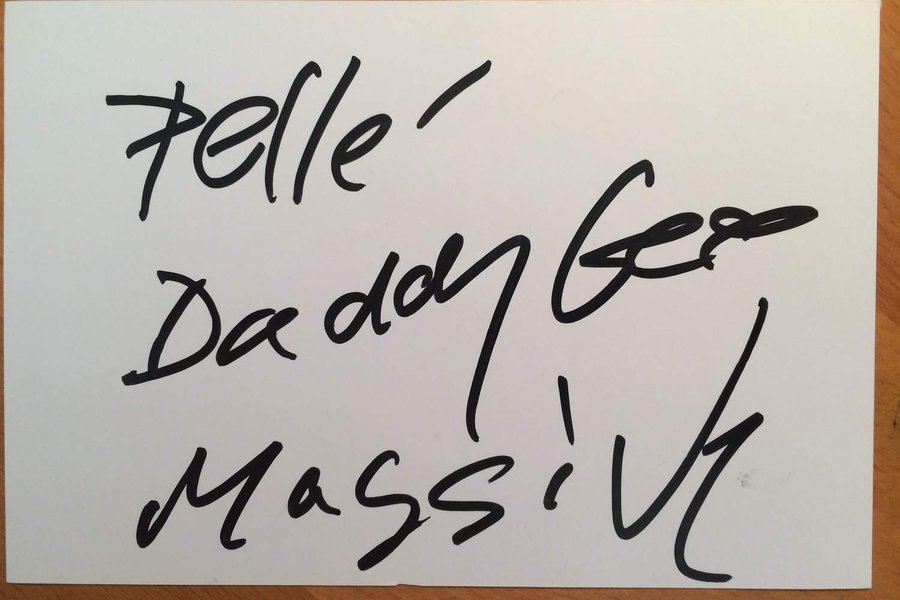 Pellé
Daddy Gee
Massive